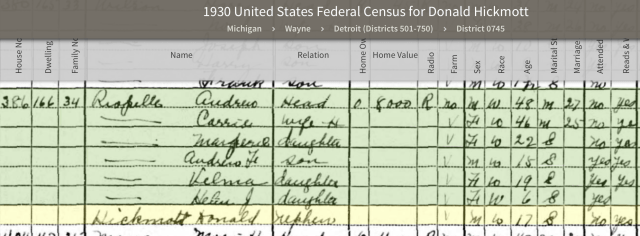 1930 United States Federal Census for Donald Hickmott
Michigan > Wayne > Detroit (Districts 501-750) > District 0745
House No Dwelling Family No Name Relation Home Ow Home Value Radio Farm Sex Race Age Marital St Marriage Attended Reads &
Frank son
386 166 34 Riopelle Andrew Head O 8000 R no M W 48 M 27 no yes
Carrie wife-H V F W 46 M 25 no
daughter V F W 22 S no yes
Andrew son V M W 18 S yes yes
Velma daughter F W 19 S yes yes
Helen J daughter V F W 6 S yes
Hickmott Donald nephew M W 17 S no yes